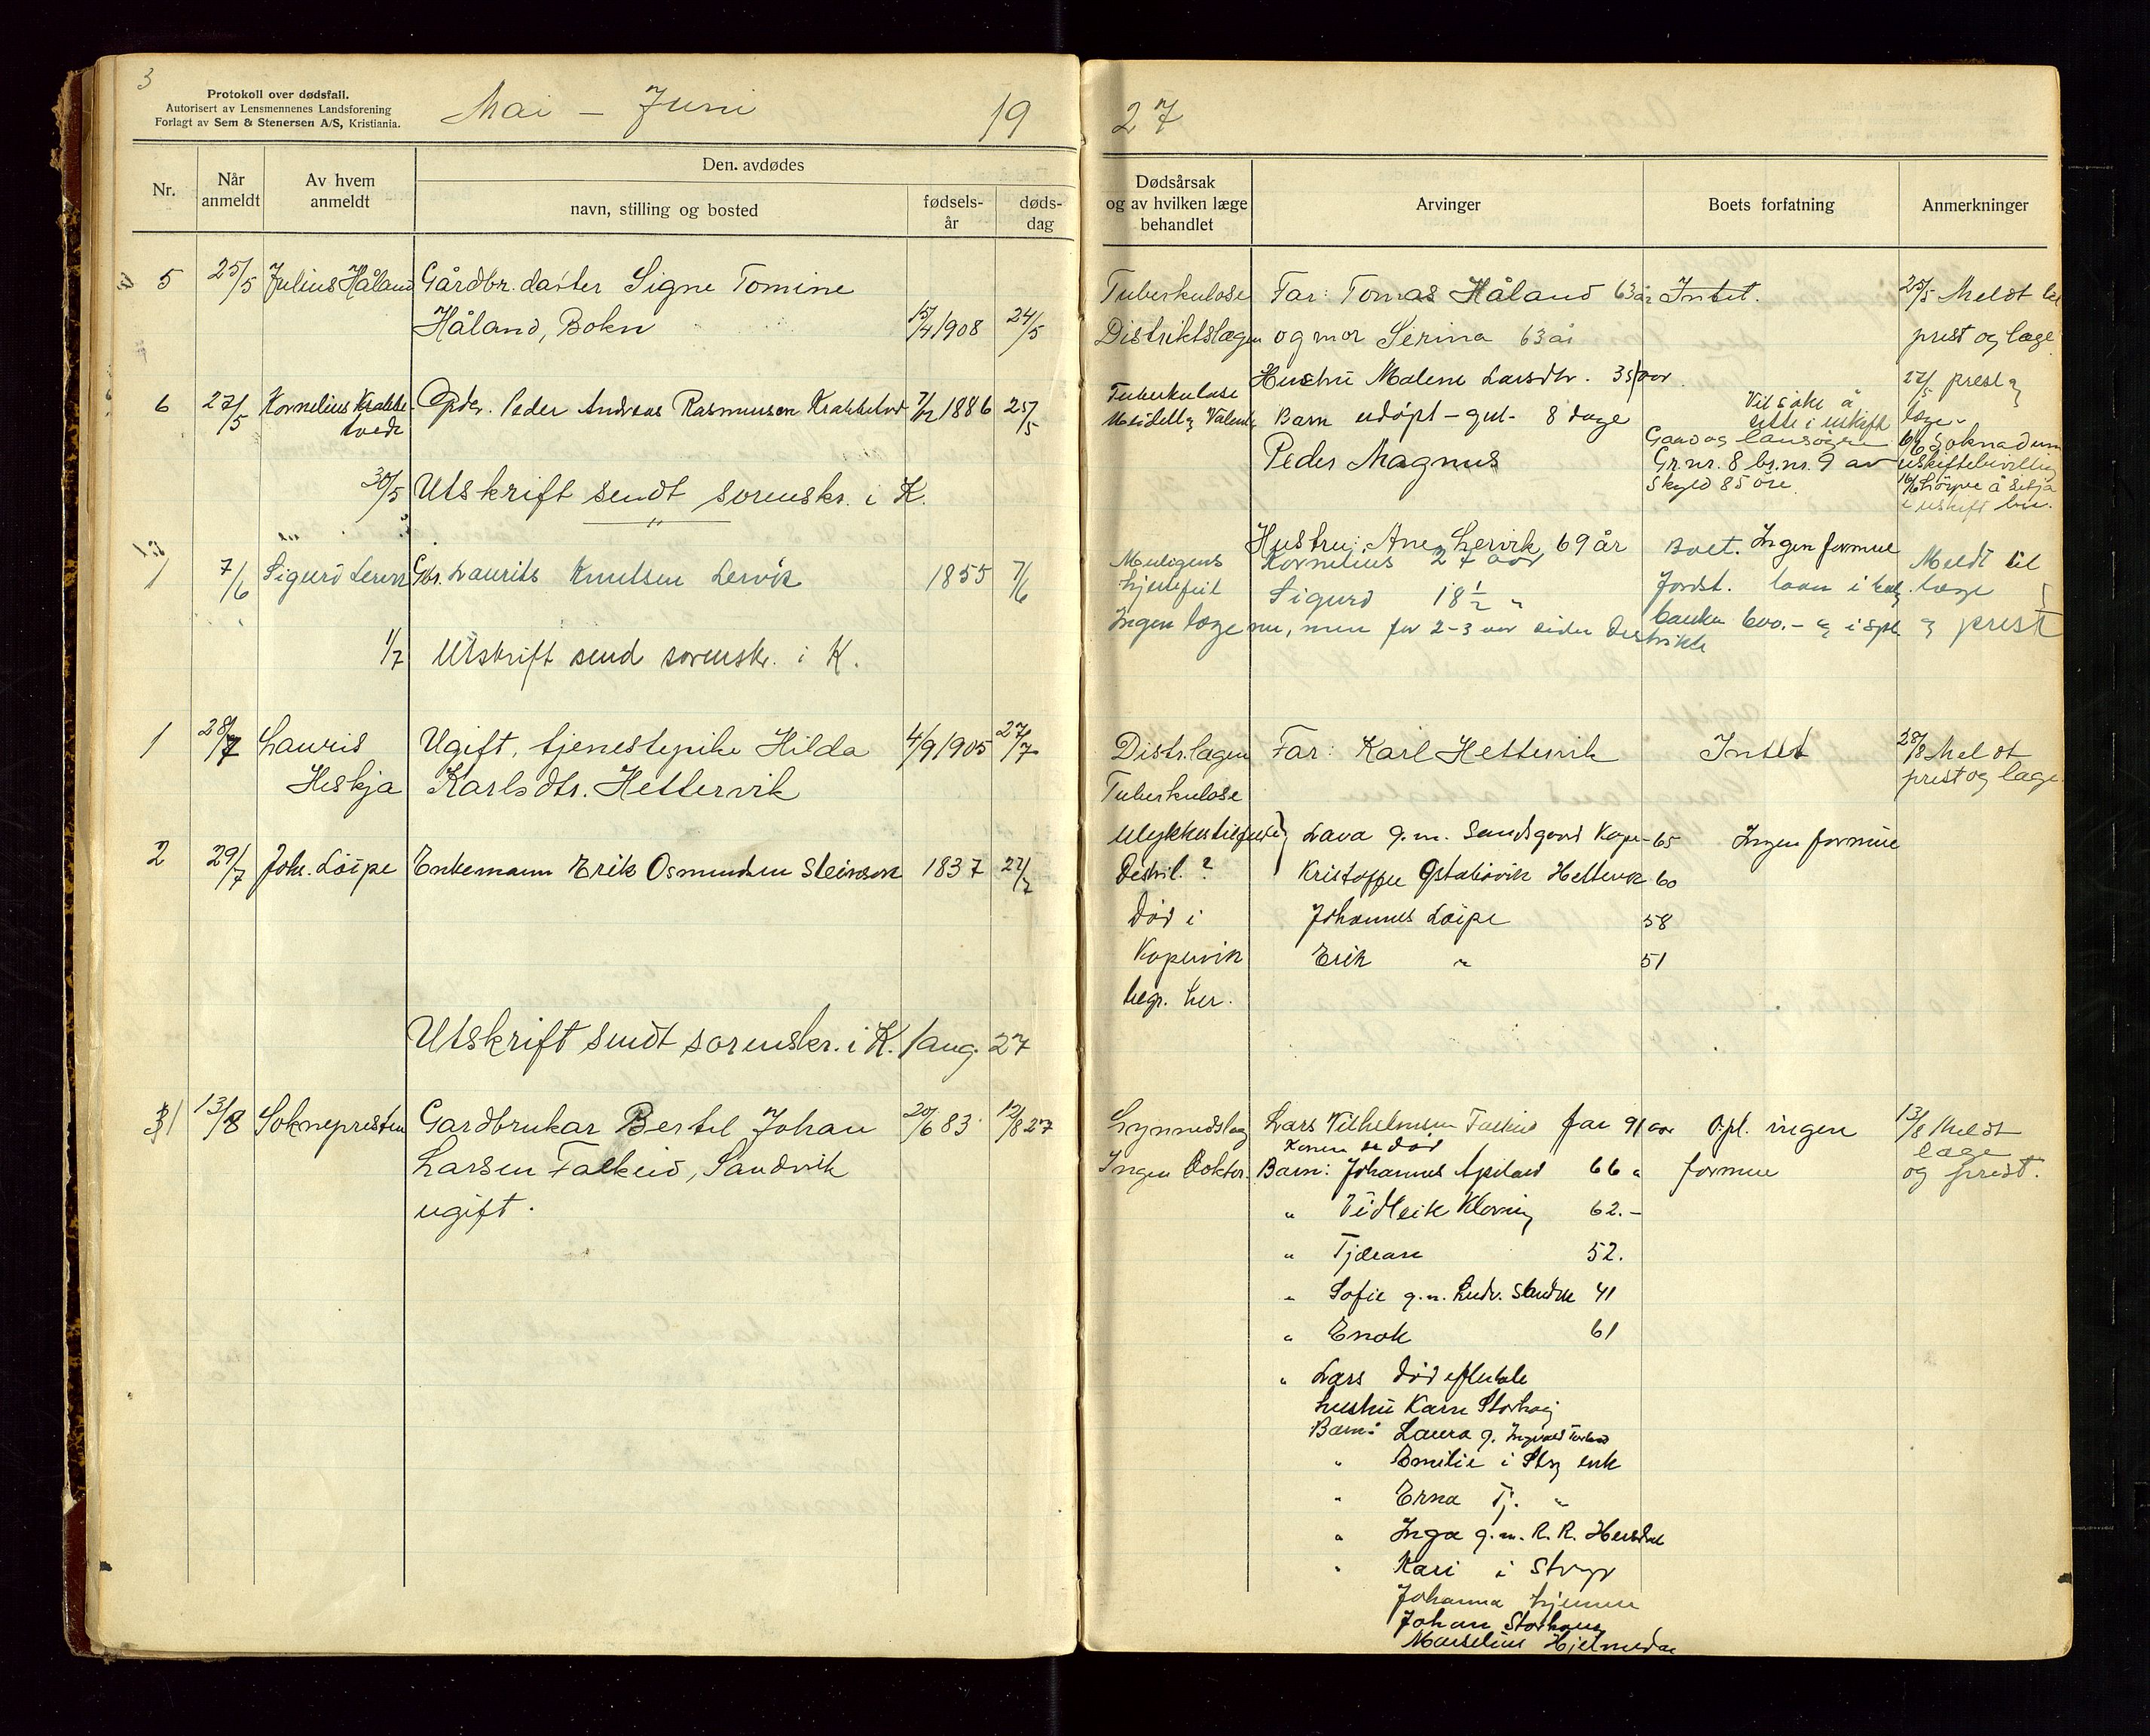 3
Protokoll over dødsfall.
Autorisert av Lensmennenes Landsforening
Forlagt av Sem & Stenersen A/S, Kristiania.
Mai - Juni 19
27
Nr.
Når anmeldt
Av hvem anmeldt
Den avdødes
navn, stilling og bosted
fødsels-år
døds-dag
Dødsårsak og av hvilken læge behandlet
Arvinger
Boets forfatning
Anmerkninger
5 25/5 Julius Håland Gårdbr. datter Signe Tomine
Håland, Bokn 15/4 1908 24/5
Tuberkulose Far: Tomas Håland 63 år Intet. 25/5 Meldt
Distriktslægen og mor Serina 63 år prest og læge
6 27/5 Kornelius Peder Andreas Rasmussen 1886 25/5
Tuberkulose Hustru Malene Larsdtr. 35 aar 27/5 prest og
Barn udøpt - gut - 8 dage Vil søke å
sitte i uskifte læge
Peder Magnus
Gr.nr. 8 br.nr. 9 av
skyld 85 øre.
30/5 Utskrift sendt sorenskr. i K.
7/6 Sigurd Lervik Gbr. Laurits Knutsen Lervik 1855 7/6
Muligens hjertefeil
Hustru: Ane Lervik 69 år Boet. Ingen formue Meldt til
Kornelius 27 aar
Sigurd 18 1/2 " laan i læge
Ingen læge nu, men for 2-3 aar siden 600.- og i og prest
1/7 Utskrift send sorenskr. i K.
1 28/7 Lauris Heskja Ugift, tjenestepike Hilda 4/9 1905 27/7
Karlsdtr. Hettervik
Distr.lægen Far: Karl Hettervik Intet 28/8 Meldt
Tuberkulose prest og læge
2 29/7 Joh. Løipe Enkemann Erik Osmundsen 1837 27/7
Lava g.m. 65 Ingen formue
Distril. ? Kristoffer 60
Død i Johannes Løipe 58
Kopervik Erik " 51
begr. her.
Utskrift sendt sorenskr. i K. 1 aug. 27
31 13/8 Soknepresten Gardbrukar Bertel Johan 20/6 83 12/8 27
Larsen Falkeid, Sandvik
ugift.
Lars Vilhelmsen Falkeid far 91 aar Opl. ingen 13/8 Meldt
Konen er død læge
Ingen Doktor. Barn: Johannes 66 " formue og prest.
" Vidleik 62.-
" Tjæran 52.
" Sofie g.m. Ludv. 41
" Enok 61
" Lars død efterlate
hustru Karen Storhaug
Barn: Laura g. Ingvald
" Emilie i enk
" Erna Tj. "
" Inga g.m. R. R.
" Kari i Stvgr
Johanna hjemme
Johan Storhaug
Marselius